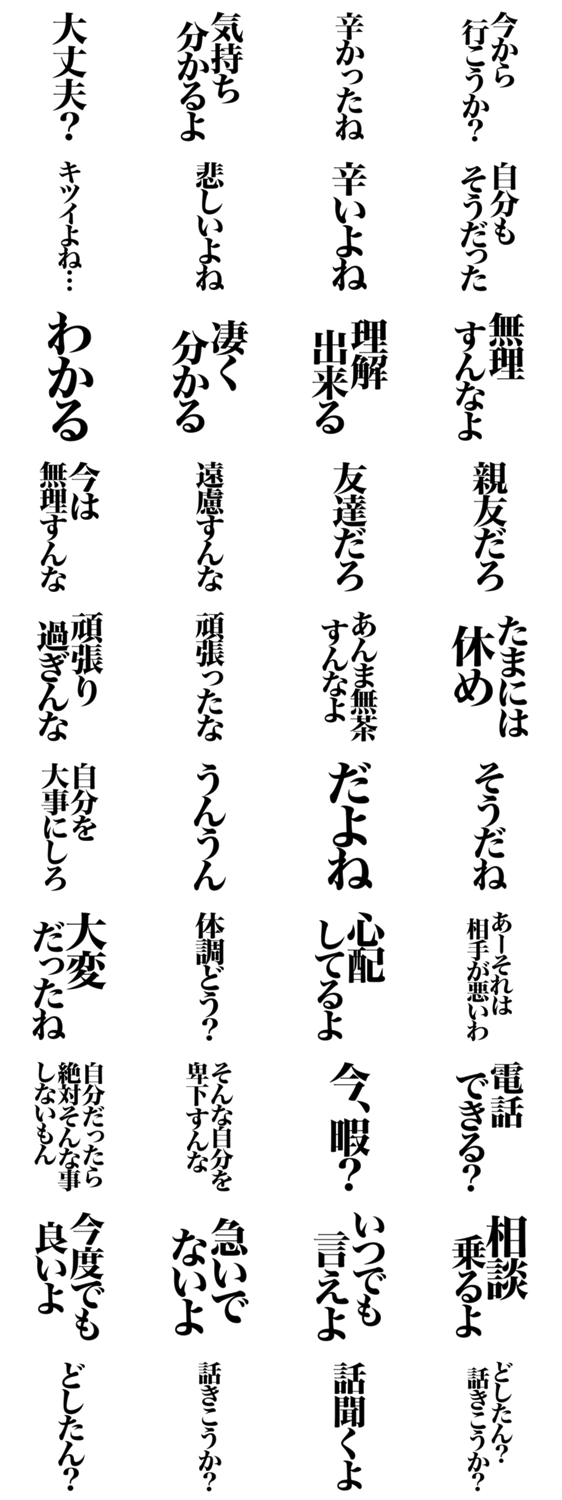 大丈夫？
気持ち
分かるよ
辛かったね
今から
行こうか？
キツイよね…
悲しいよね
辛いよね
自分も
そうだった
わかる
凄く
分かる
理解
出来る
無理
すんなよ
今は
無理すんな
遠慮すんな
友達だろ
親友だろ
頑張り
過ぎんな
頑張ったな
あんま無茶
すんなよ
たまには
休め
自分を
大事にしろ
うんうん
だよね
そうだね
大変
だったね
体調どう？
心配
してるよ
あーそれは
相手が悪いわ
自分だったら
絶対そんな事
しないもん
そんな自分を
卑下すんな
今、暇？
電話
できる？
今度でも
良いよ
急いで
ないよ
いつでも
言えよ
相談
乗るよ
どしたん？
話きこうか？
話聞くよ
どしたん？
話きこうか？